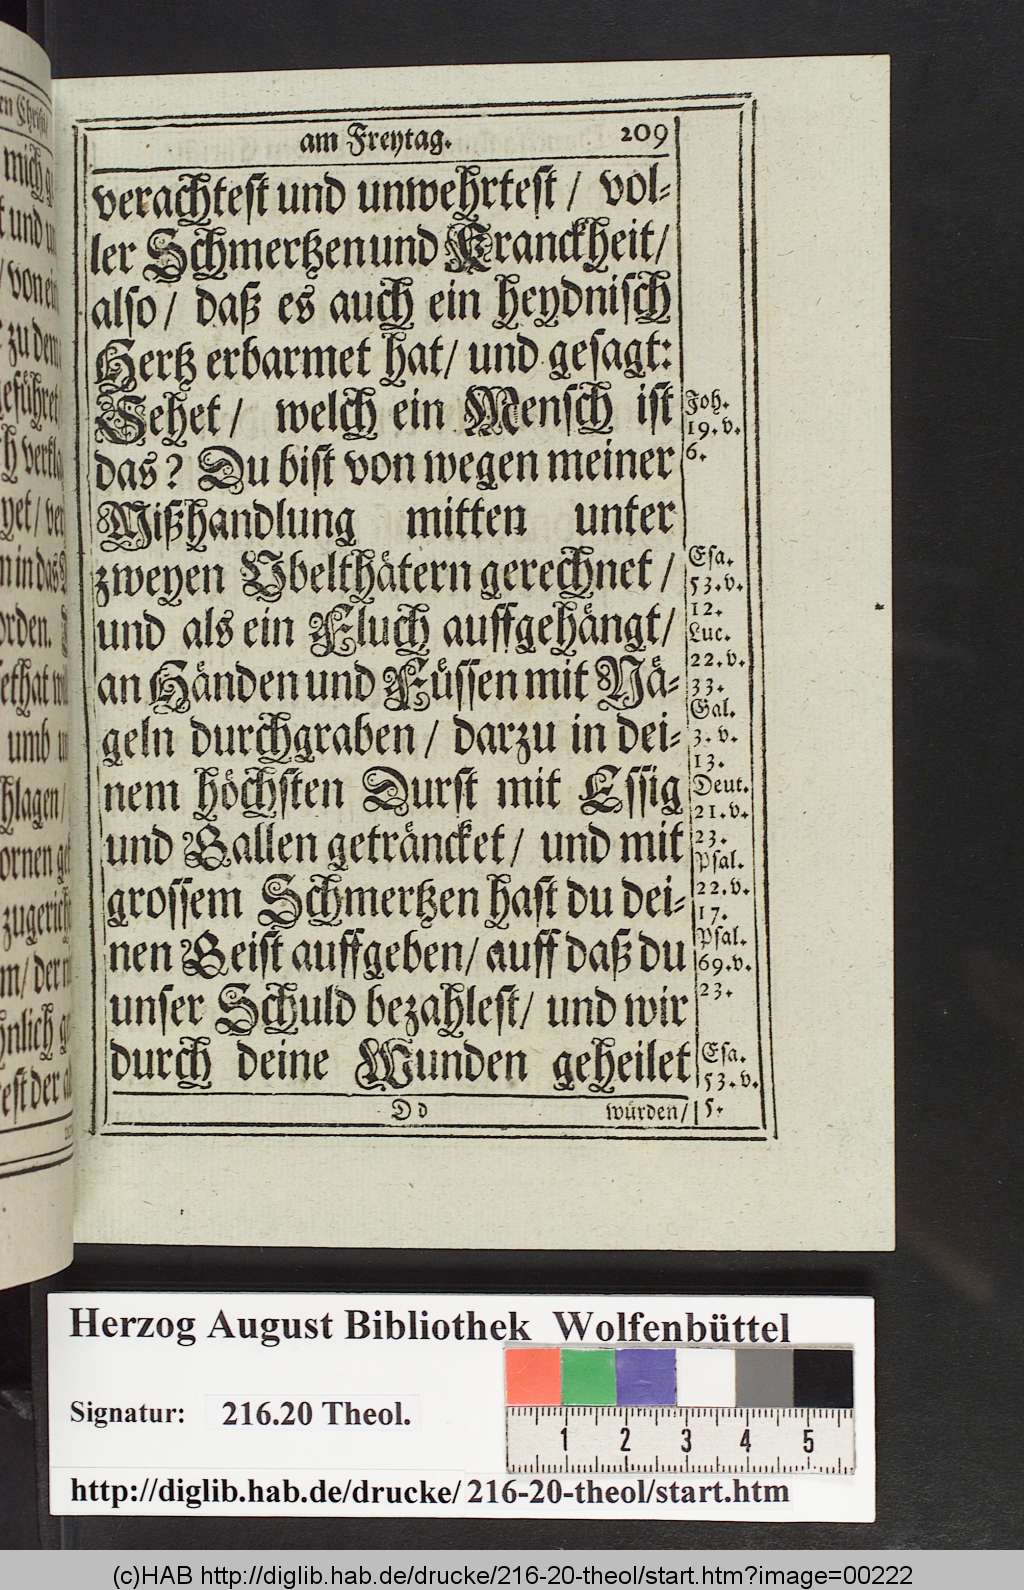 am Freytag. 209
verachtest und unwehrtest / vol-
ler Schmertzen und Kranckheit /
also / daß es auch ein heydnisch
Hertz erbarmet hat / und gesagt:
Sehet / welch ein Mensch ist
das? Du bist von wegen meiner
Mißhandlung mitten unter
zweyen Vbelthätern gerechnet /
und als ein Fluch auffgehängt /
an Händen und Füssen mit Nä-
geln durchgraben / darzu in dei-
nem höchsten Durst mit Essig
und Gallen geträncket / und mit
grossem Schmertzen hast du dei-
nen Geist auffgeben / auff daß du
unser Schuld bezahlest / und wir
durch deine Wunden geheilet
Dd würden /
Joh.
19. v.
6.
Esa.
53. v.
12.
Luc.
22. v.
33.
Gal.
3. v.
13.
Deut.
21. v.
23.
Psal.
22. v.
17.
Psal.
69. v.
23.
Esa.
53. v.
5.
mich
und
von
zu dem
geführet
verkla
in das
orden.
umb
hlagen /
ornen
zugericht
der
hnlich
est der
Herzog August Bibliothek Wolfenbüttel
Signatur: 216.20 Theol.
1 2 3 4 5
http://diglib.hab.de/drucke/216-20-theol/start.htm
(c)HAB http://diglib.hab.de/drucke/216-20-theol/start.htm?image=00222